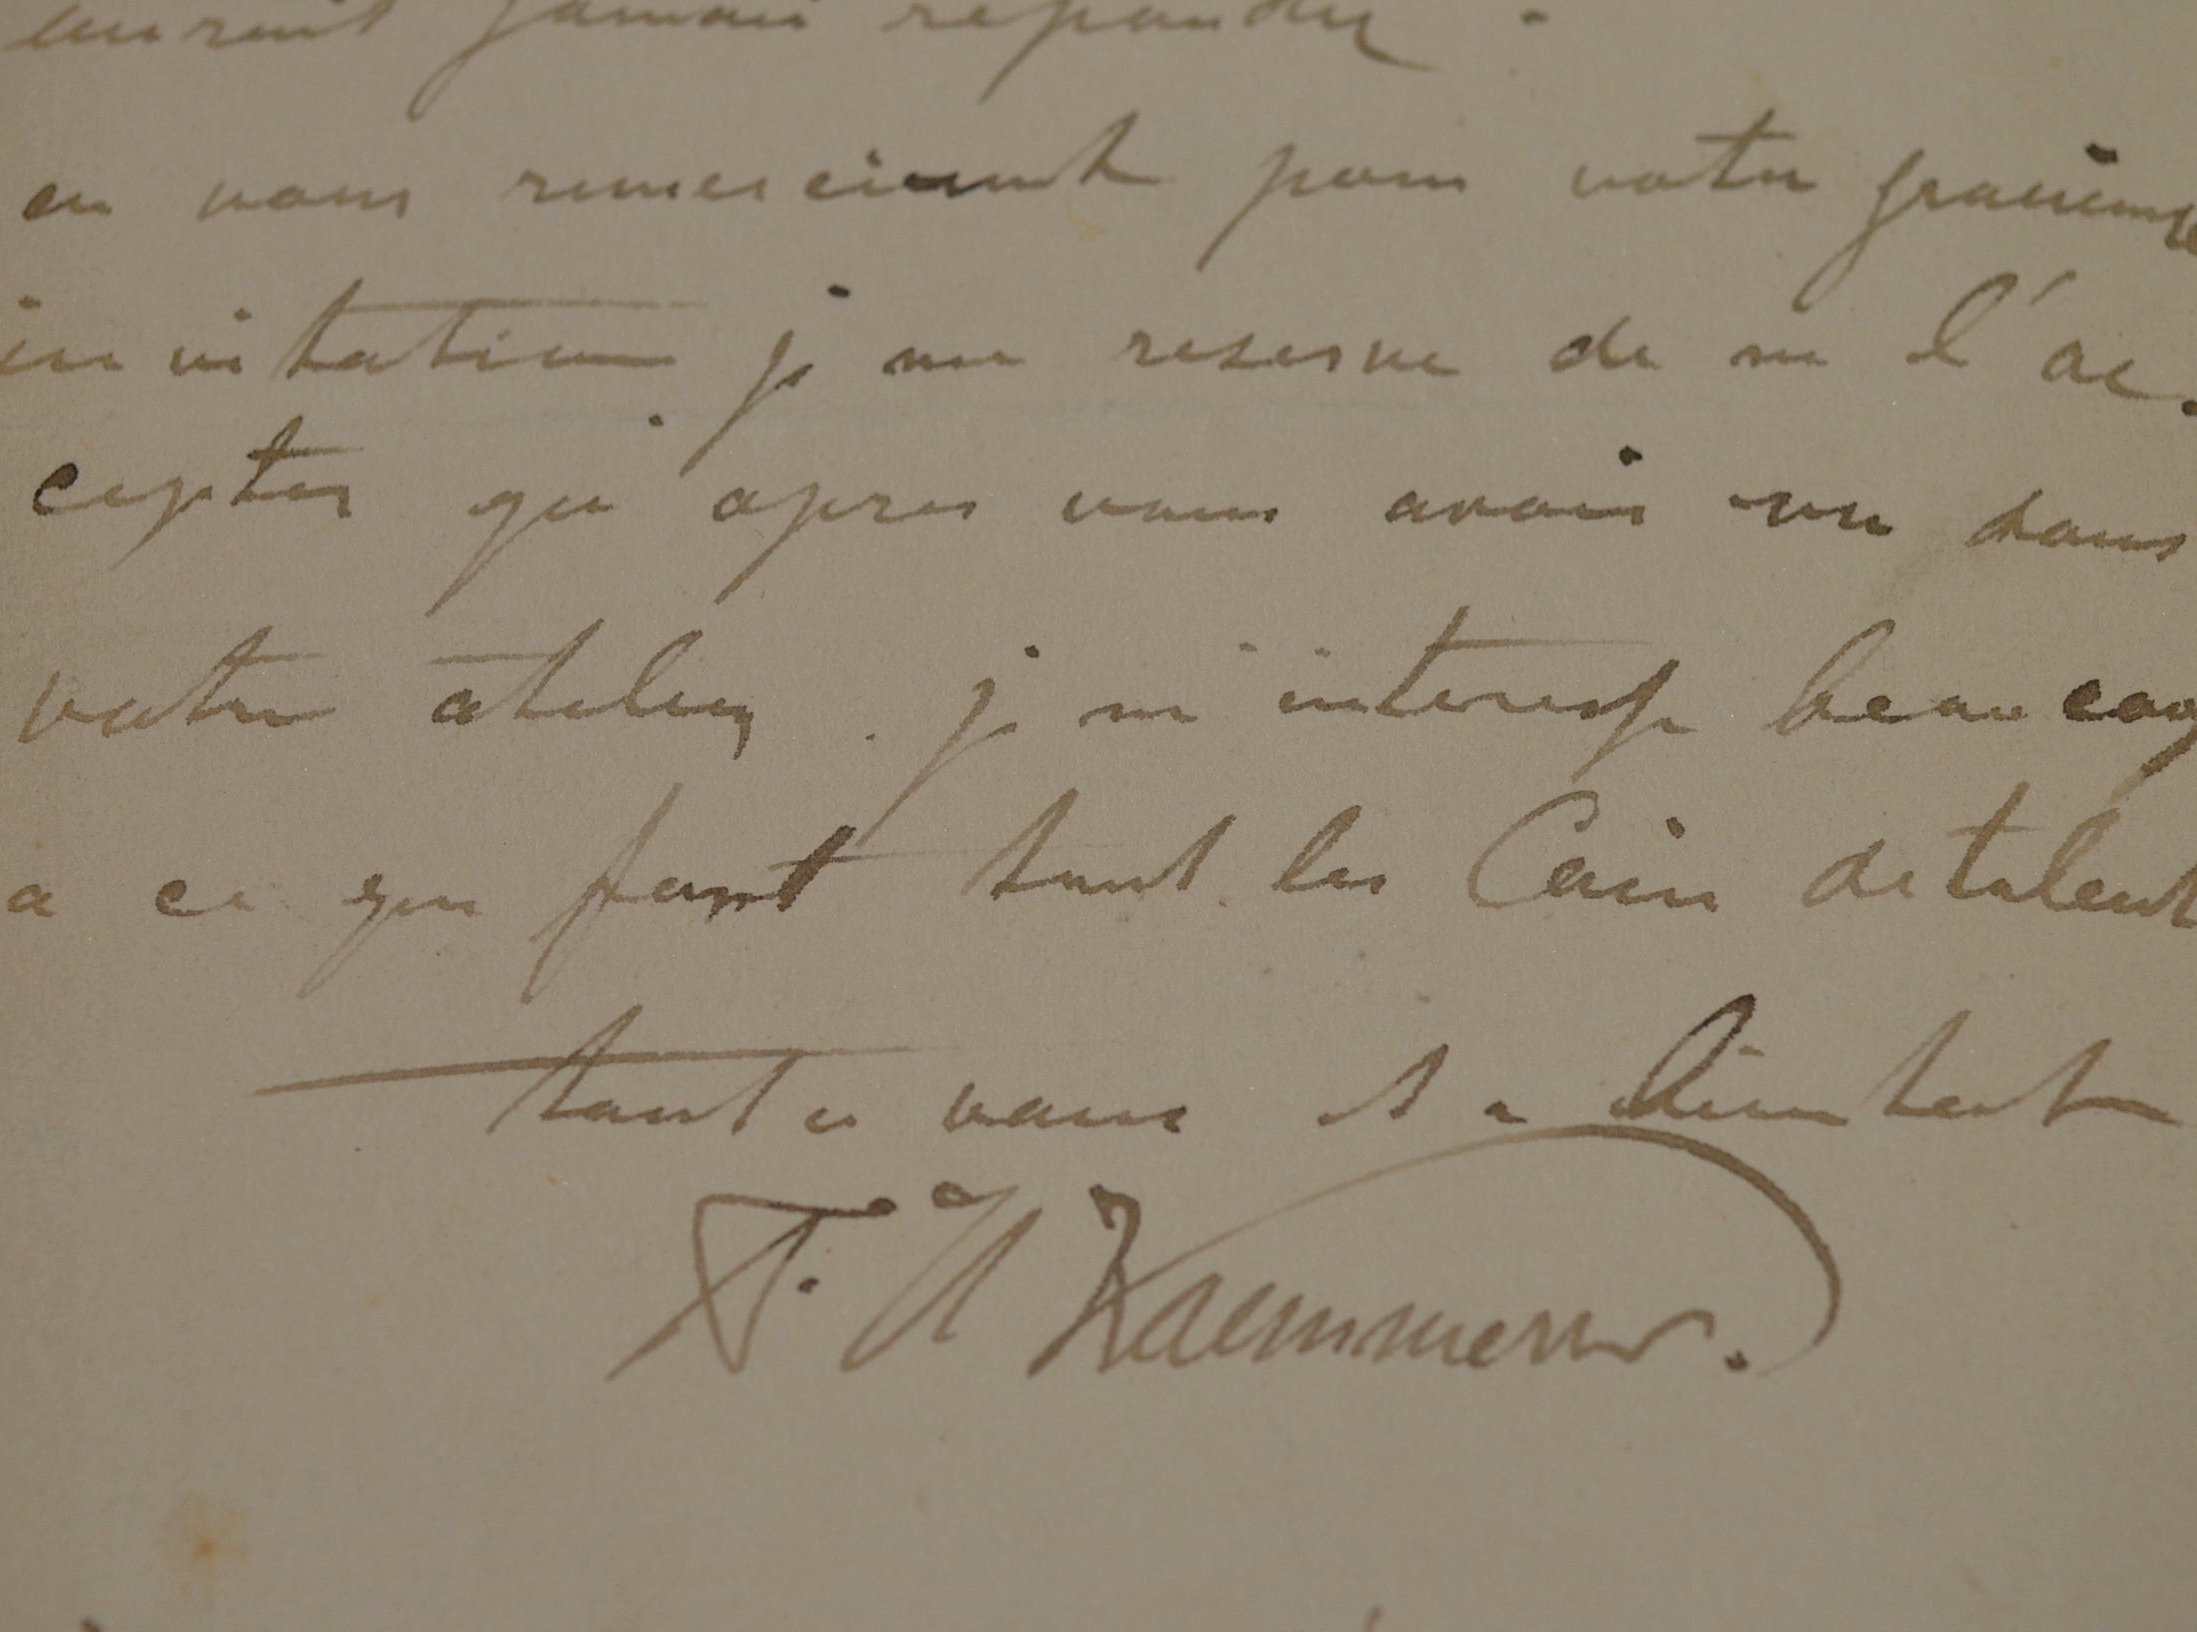 jamais repondu.
en vous remerciant pour votre gracieuse
invitation je me reserve de ne l'ac-
cepter qu'apres vous avoir vu dans
votre atelier. je m'interesse beaucoup
a ce que font tout les Cain de talent
tout a vous et a bientot
F. H Kaemmerer.